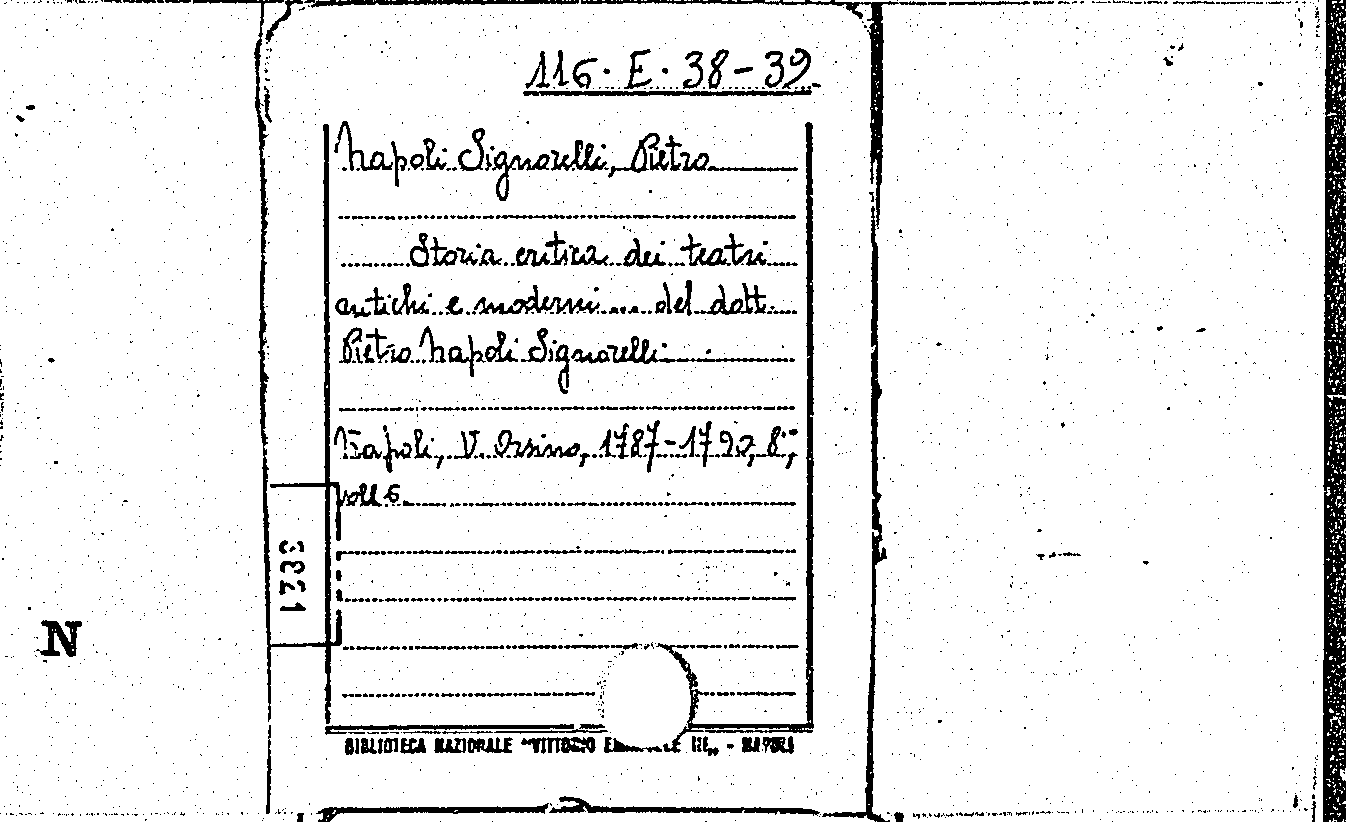 116. E. 38-39.
Napoli Signorelli, Pietro
Storia critica dei teatri
antichi e moderni... del dott.
Pietro Napoli Signorelli.
Napoli, V. Orsino, 1787-1790, 8°,
voll 6.
3821
N
BIBLIOTECA NAZIONALE "VITTORIO III„ - NAPOLI